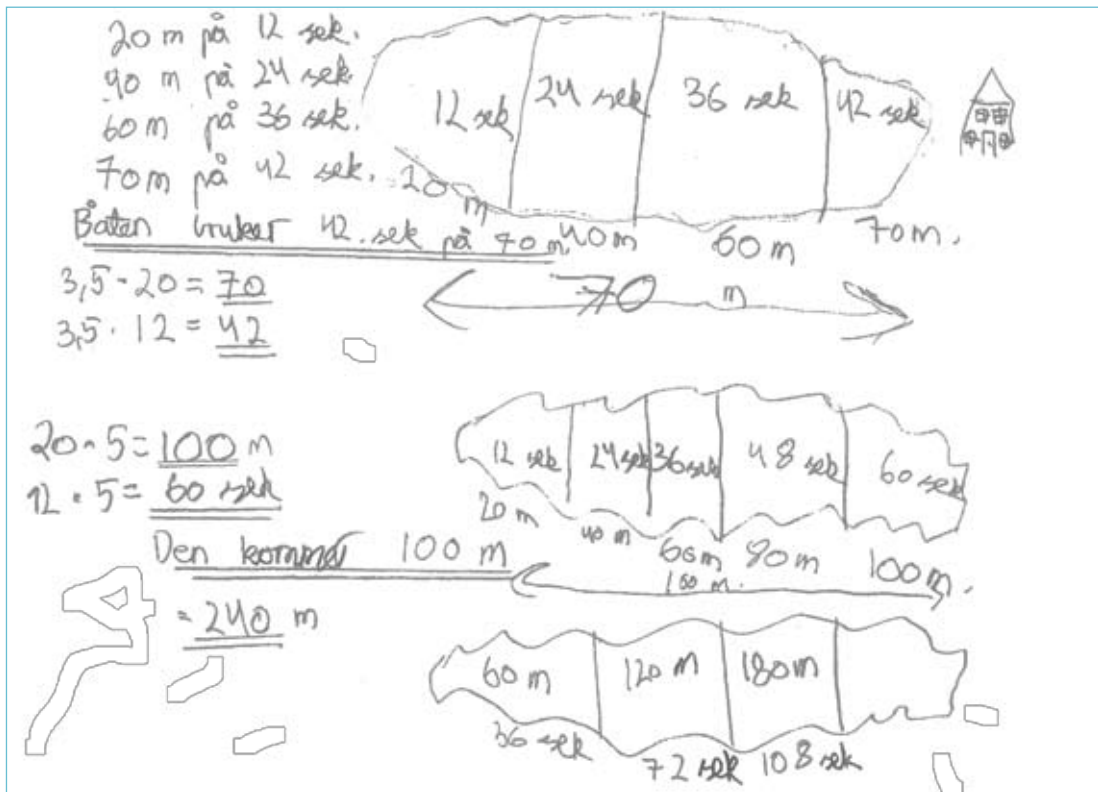 20 m på 12 sek.
40 m på 24 sek.
60 m på 36 sek.
70 m på 42 sek.
Båten bruker 42. sek på 70 m.
3,5 · 20 = 70
3,5 · 12 = 42
12 sek 24 sek 36 sek 42 sek
20 m 40 m 60 m 70 m.
70 m
20 · 5 = 100 m
12 · 5 = 60 sek
Den kommer 100 m
= 240 m
12 sek 24 sek 36 sek 48 sek 60 sek
20 m 40 m 60 m 80 m 100 m.
100 m.
60 m 120 m 180 m
36 sek 72 sek 108 sek